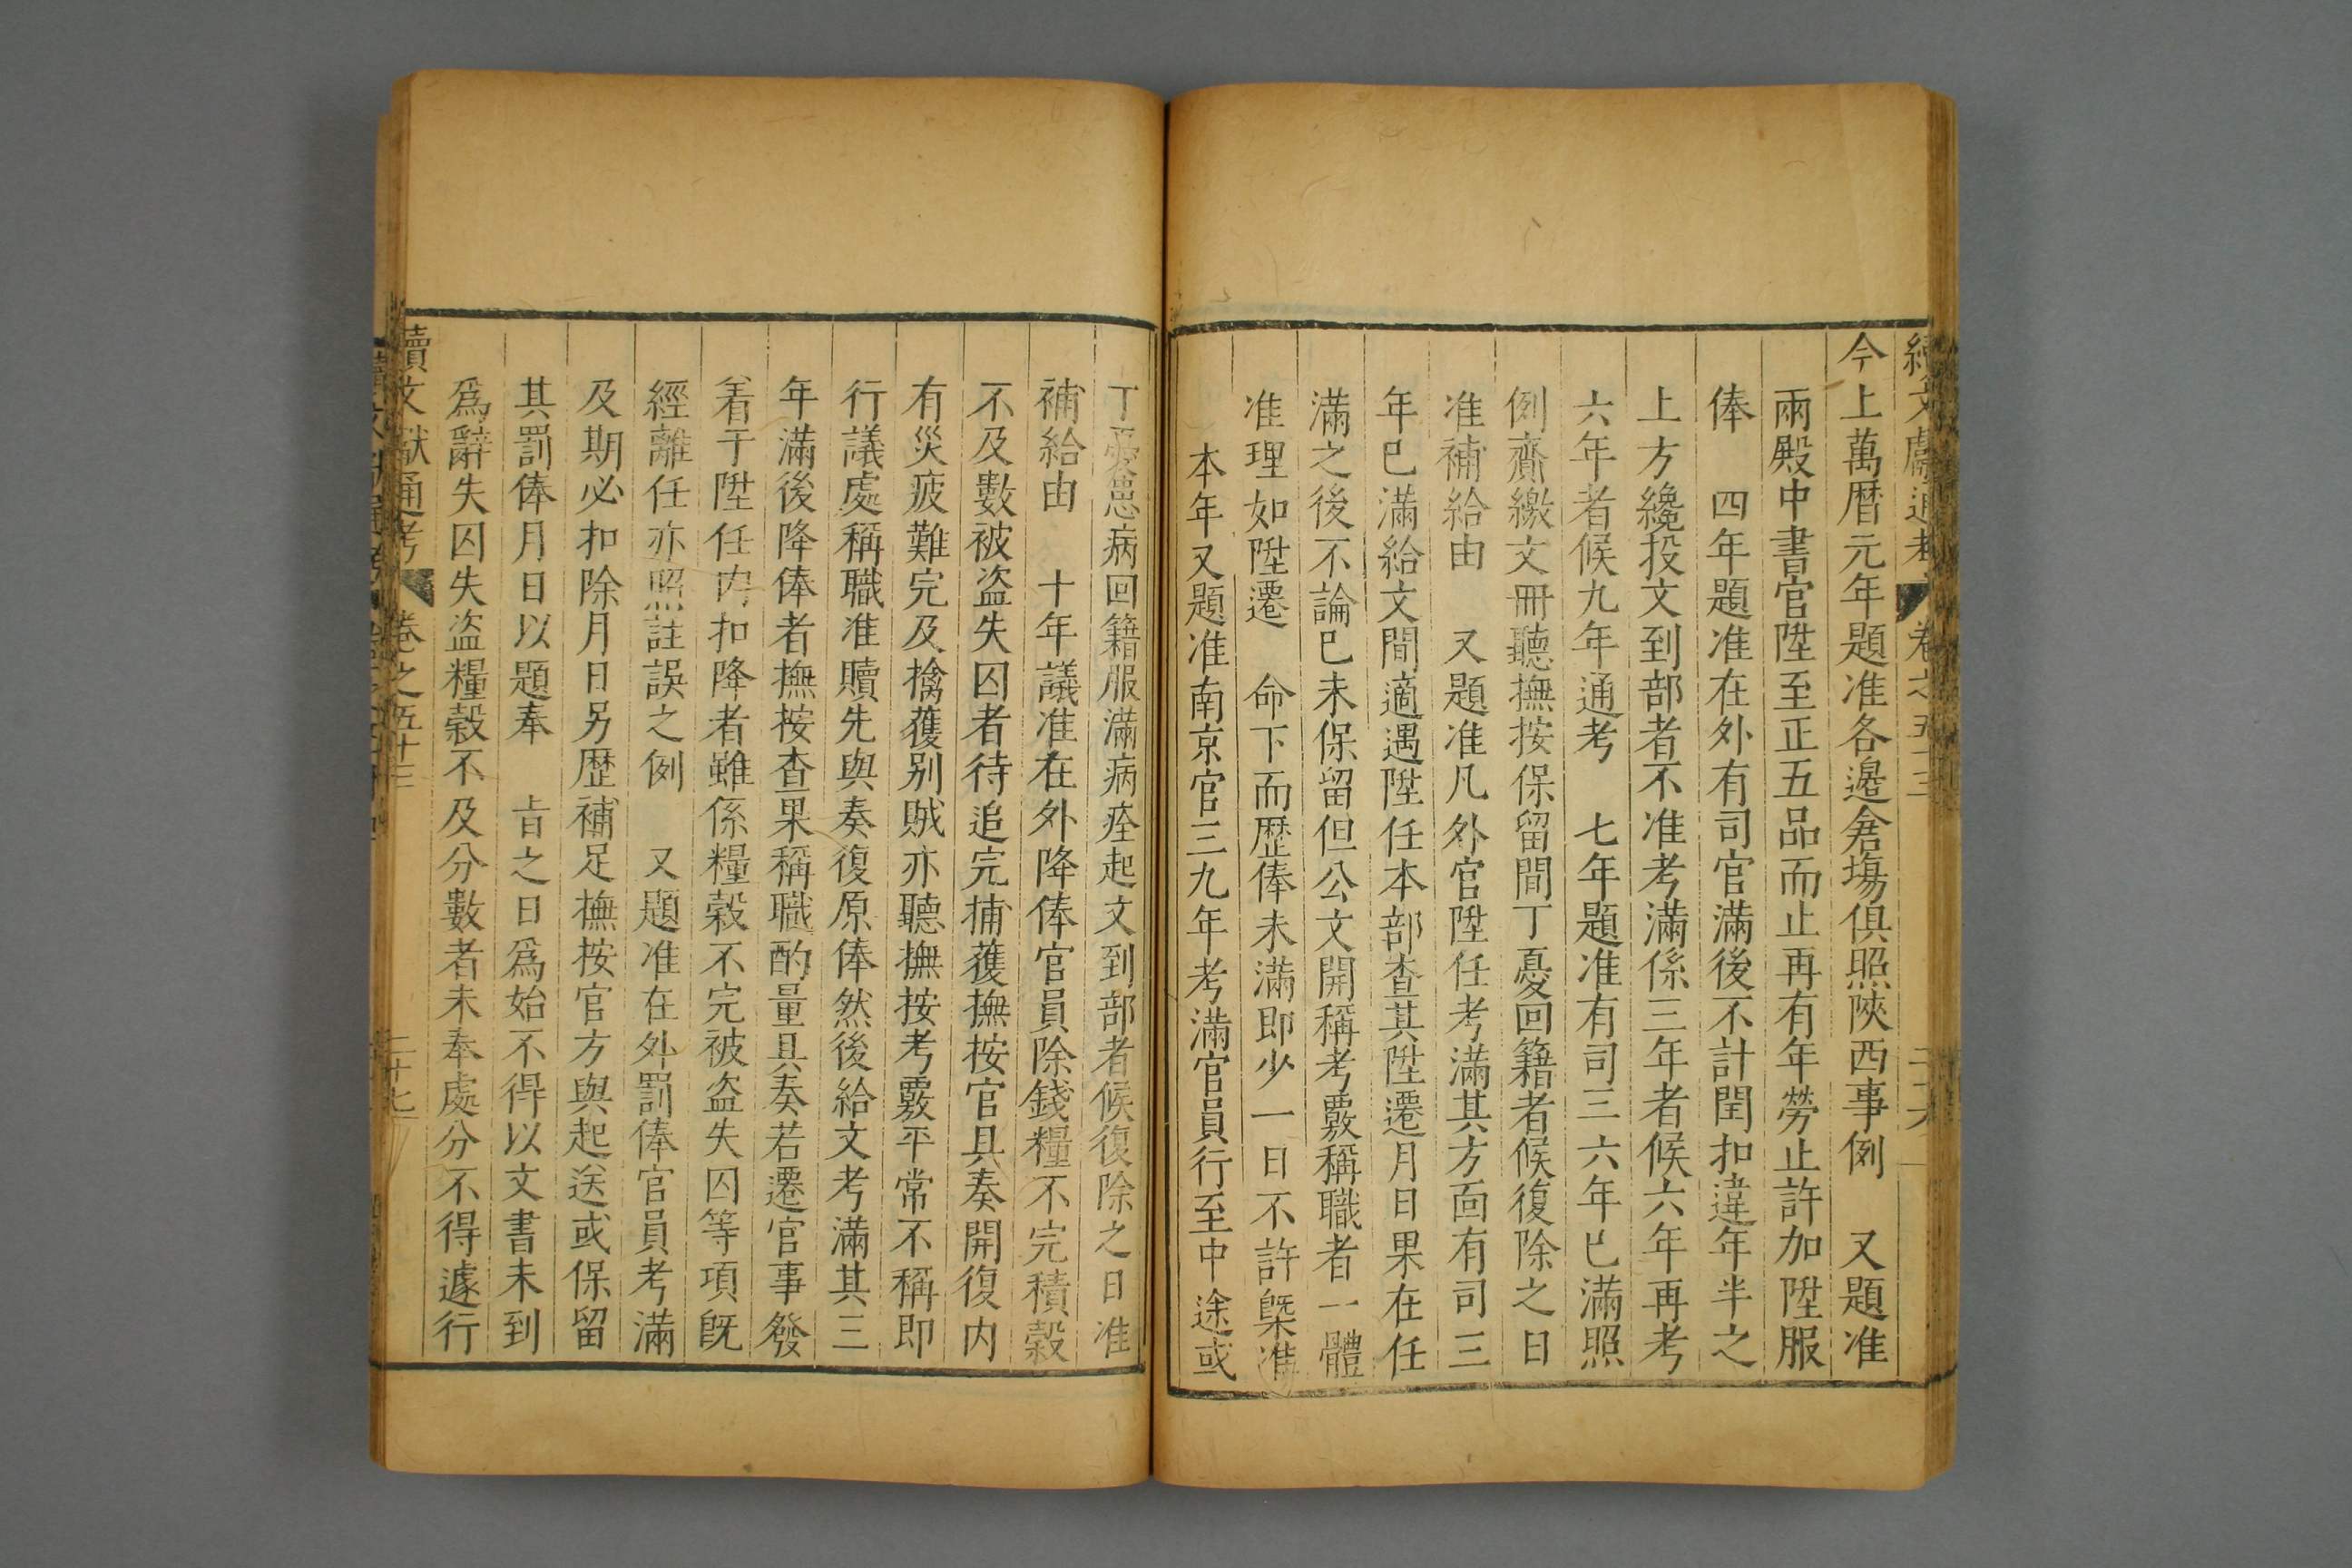 續文獻通考 卷之五十三 二十六
今上萬曆元年題准各邊倉塲俱照陝西事例 又題准
兩殿中書官陞至正五品而止再有年勞止許加陞服
俸 四年題准在外有司官滿後不計閏扣違年半之
上方纔投文到部者不准考滿係三年者候六年再考
六年者候九年通考 七年題准有司三六年已滿照
例齎繳文冊聽撫按保留間丁憂回籍者候復除之日
准補給由 又題准凡外官陞任考滿其方面有司三
年已滿給文間適遇陞任本部查其陞遷月日果在任
滿之後不論已未保留但公文開稱考覈稱職者一體
准理如陞遷 命下而歴俸未滿即少一日不許槩准
本年又題准南京官三九年考滿官員行至中途或
丁憂患病回籍服滿病痊起文到部者候復除之日准
補給由 十年議准在外降俸官員除錢糧不完積穀
不及數被盗失囚者待追完捕獲撫按官具奏開復内
有災疲難完及擒獲别賊亦聽撫按考覈平常不稱即
行議處稱職准贖先與奏復原俸然後給文考滿其三
年滿後降俸者撫按查果稱職酌量具奏若遷官事發
着于陞任内扣降者雖係糧穀不完被盗失囚等項旣
經離任亦照註誤之例 又題准在外罰俸官員考滿
及期必扣除月日另歴補足撫按官方與起送或保留
其罰俸月日以題奉 旨之日爲始不得以文書未到
爲辭失囚失盗糧穀不及分數者未奉處分不得遽行
續文獻通考 卷之五十三 二十七